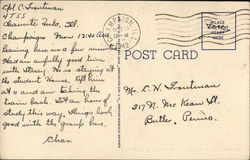 Cpl C. Troutman
4 TSS
Chanute Field, Ill.
Champaign Mon 12:40 AM
leaving here in a few minutes
Had an awfully good time
with Stacy. He is staying at
the student House. Left him
at 11 and am taking the
train back. Got an hour of
study this way. Things look
good with the group here.
Chas.
CHAMPAIGN
1942
POST CARD
Mr. C. H. Troutman
317 N. Mc Kean St.
Butler, Penna.